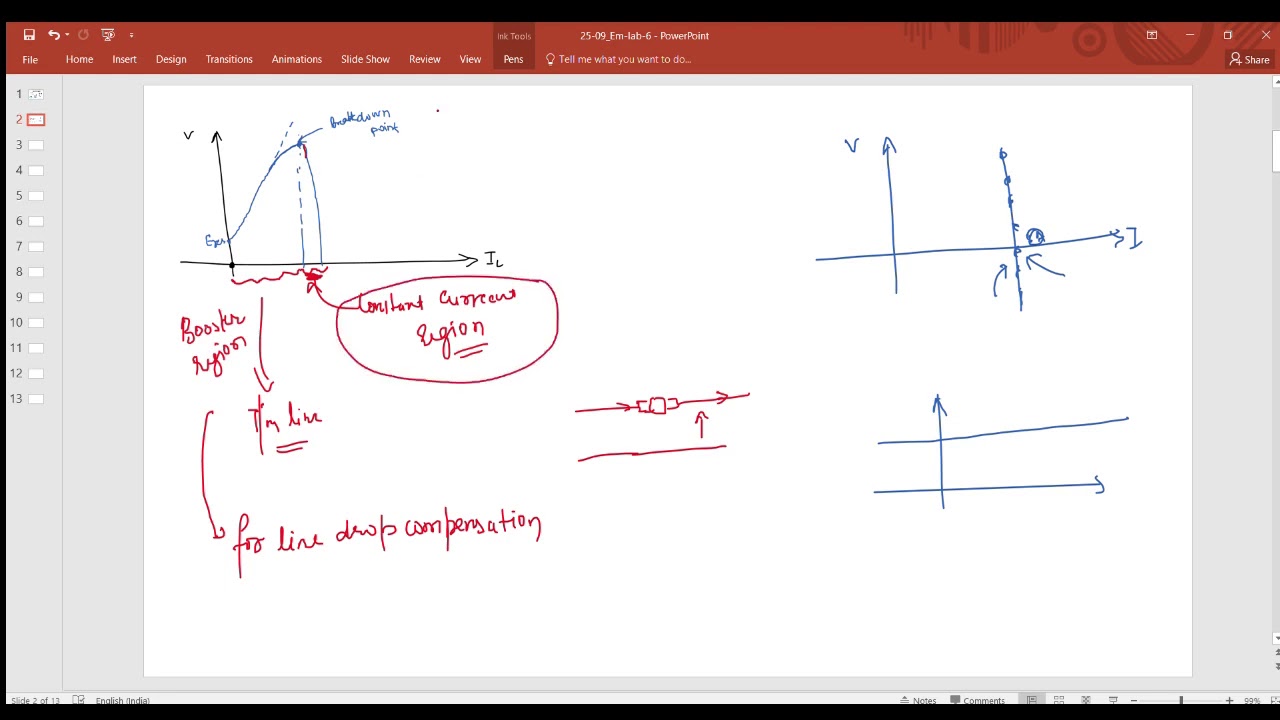 Ink Tools
25-09_Em-lab-6 - PowerPoint
File Home Insert Design Transitions Animations Slide Show Review View Pens Tell me what you want to do... Share
1
2
3
4
5
6
7
8
9
10
11
12
13
V
Breakdown
point
IL
Booster
region
Constant current
region
line
for line drop compensation
V
I
Slide 2 of 13 English (India) Notes Comments 99%